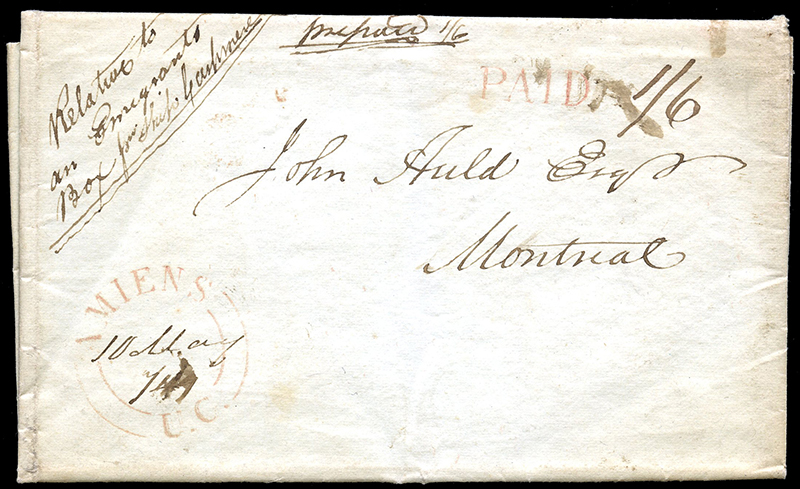 Relative to
an Emigrants
Box pr Ship Cashmere
prepaid 1/6
PAID
1/6
John Auld Esqr
Montreal
AMIENS
10 May
U.C.